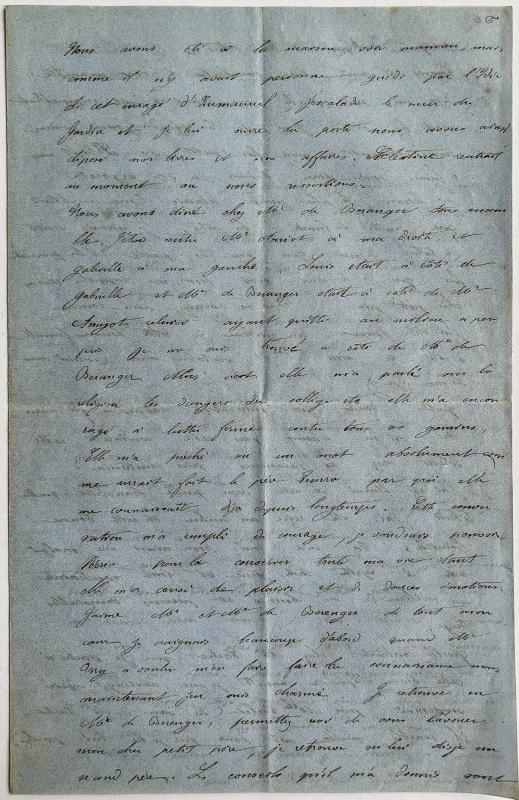 Nous avons été à la maison voir maman, mais
comme il n'y avait personne guidé par l'idée
de cet ouragé d'Aumermel, j'escalade le mur du
Jardin et je lui ouvre la porte nous avons ainsi
déposé nos livres et nos affaires. Célestine rentrait
au moment où nous ressortions.
Nous avons diné chez Mr de Beranger tous ensem
ble J'étais entre Mr Amyot à ma droite et
Gabrielle à ma gauche. Louis était à côté de
Gabrielle et Mr de Beranger était à côté de Mr
Amyot celui-ci ayant quitté au milieu à peu
près je me suis trouvé à côté de Mr de
Beranger Alors dont elle m'a parlé sur la
religion les dangers du collège etc elle m'a encou
ragé à lutter ferme contre tous ces gamins.
Elle m'a prêché en un mot absolument comme
me aurait fait le père par qui elle
me connaissait déjà depuis longtemps. Cette conver
sation m'a rempli de courage, je voudrais pouvoir
l'écrire pour la conserver toute ma vie tant
elle m'a causé de plaisir et de douces émotions.
J'aime Mr et Mme de Berenger de tout mon
cœur. Je craignais beaucoup d'abord quand Mr
a voulu m'en faire faire la connaissance mais
maintenant j'en suis charmé. Je retrouve en
Mr de Berenger, permettez moi de vous l'avouer
mon cher petit père, je retrouve en lui dis-je un
second père. Les conseils qu'il m'a donnés sont